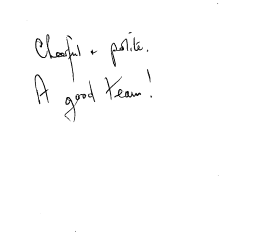 Cheerful + polite.
A good team!